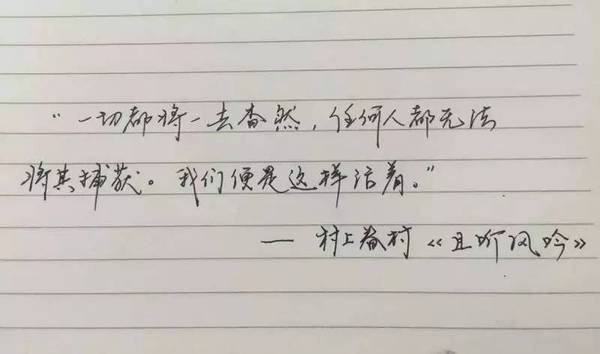 “一切都将一去杳然，任何人都无法
将其捕获。我们便是这样活着。”
— 村上春村《且听风吟》